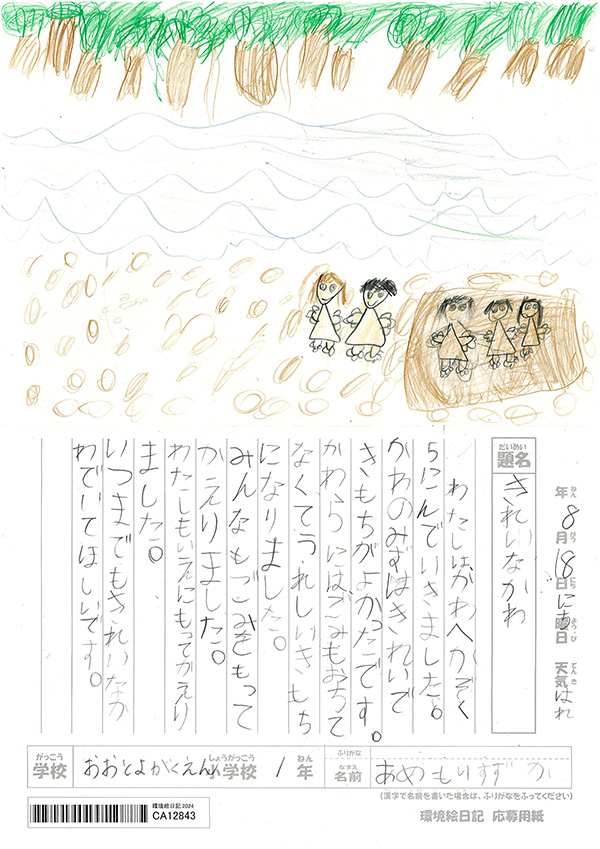 年 8月18日にち曜日 天気 はれ
ねん がつ にち ようび てんき
だいめい
題名
きれいなかわ
わたしはかわへかぞく
5にんでいきました。
かわのみずはきれいで
きもちがよかったです。
かわらにはごみもおちて
なくてうれしいきもち
になりました。
みんなもごみをもって
かえりました。
わたしもいえにもってかえり
ました。
いつまでもきれいなか
わでいてほしいです。
がっこう しょうがっこう ねん ふりがな
学校 おおとよがくえん小学校 1年
なまえ
名前 あめもりすずか
(漢字で名前を書いた場合は、ふりがなをふってください)
環境絵日記2024
CA12843
環境絵日記 応募用紙